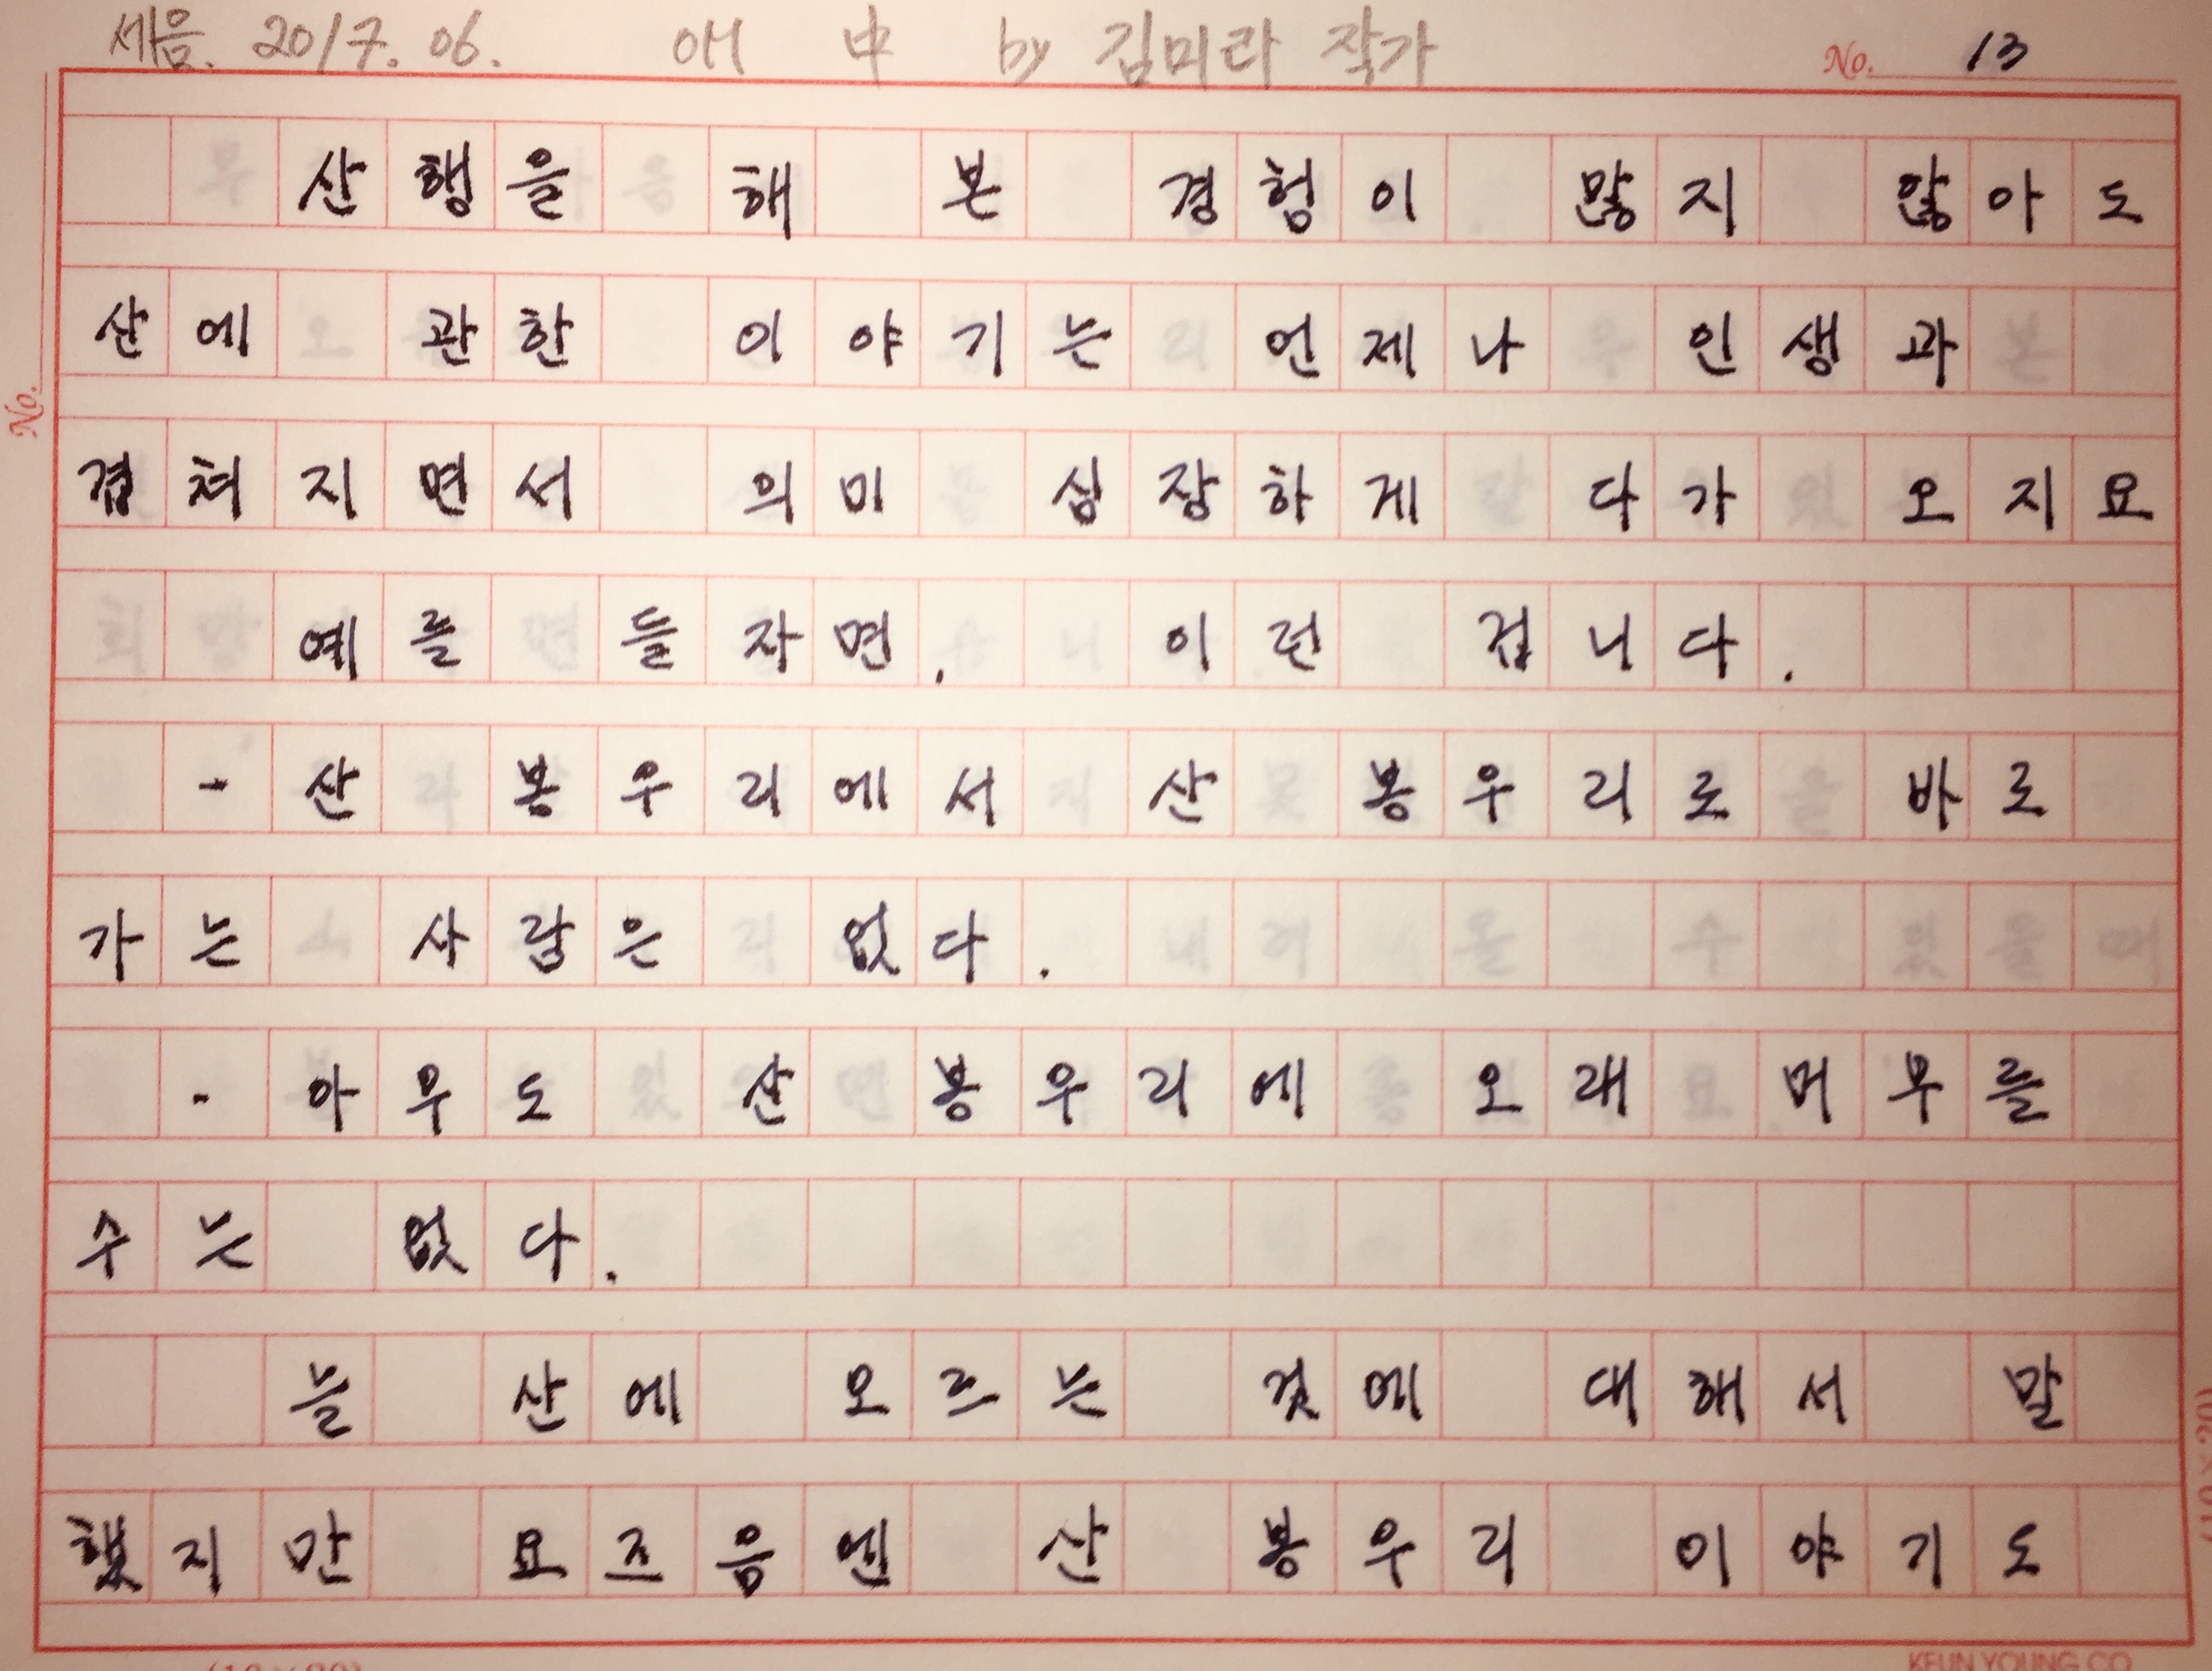 세음. 2017. 06. 애 中 by 김미라 작가
No. 13
산행을 해 본 경험이 많지 않아도
산에 관한 이야기는 언제나 인생과
겹쳐지면서 의미 심장하게 다가 오지요
예를 들자면, 이런 겁니다.
- 산 봉우리에서 산 봉우리로 바로
가는 사람은 없다.
- 아무도 산 봉우리에 오래 머무를
수는 없다.
늘 산에 오르는 것에 대해서 말
했지만 요즈음엔 산 봉우리 이야기도
No.
KEUN YOUNG CO